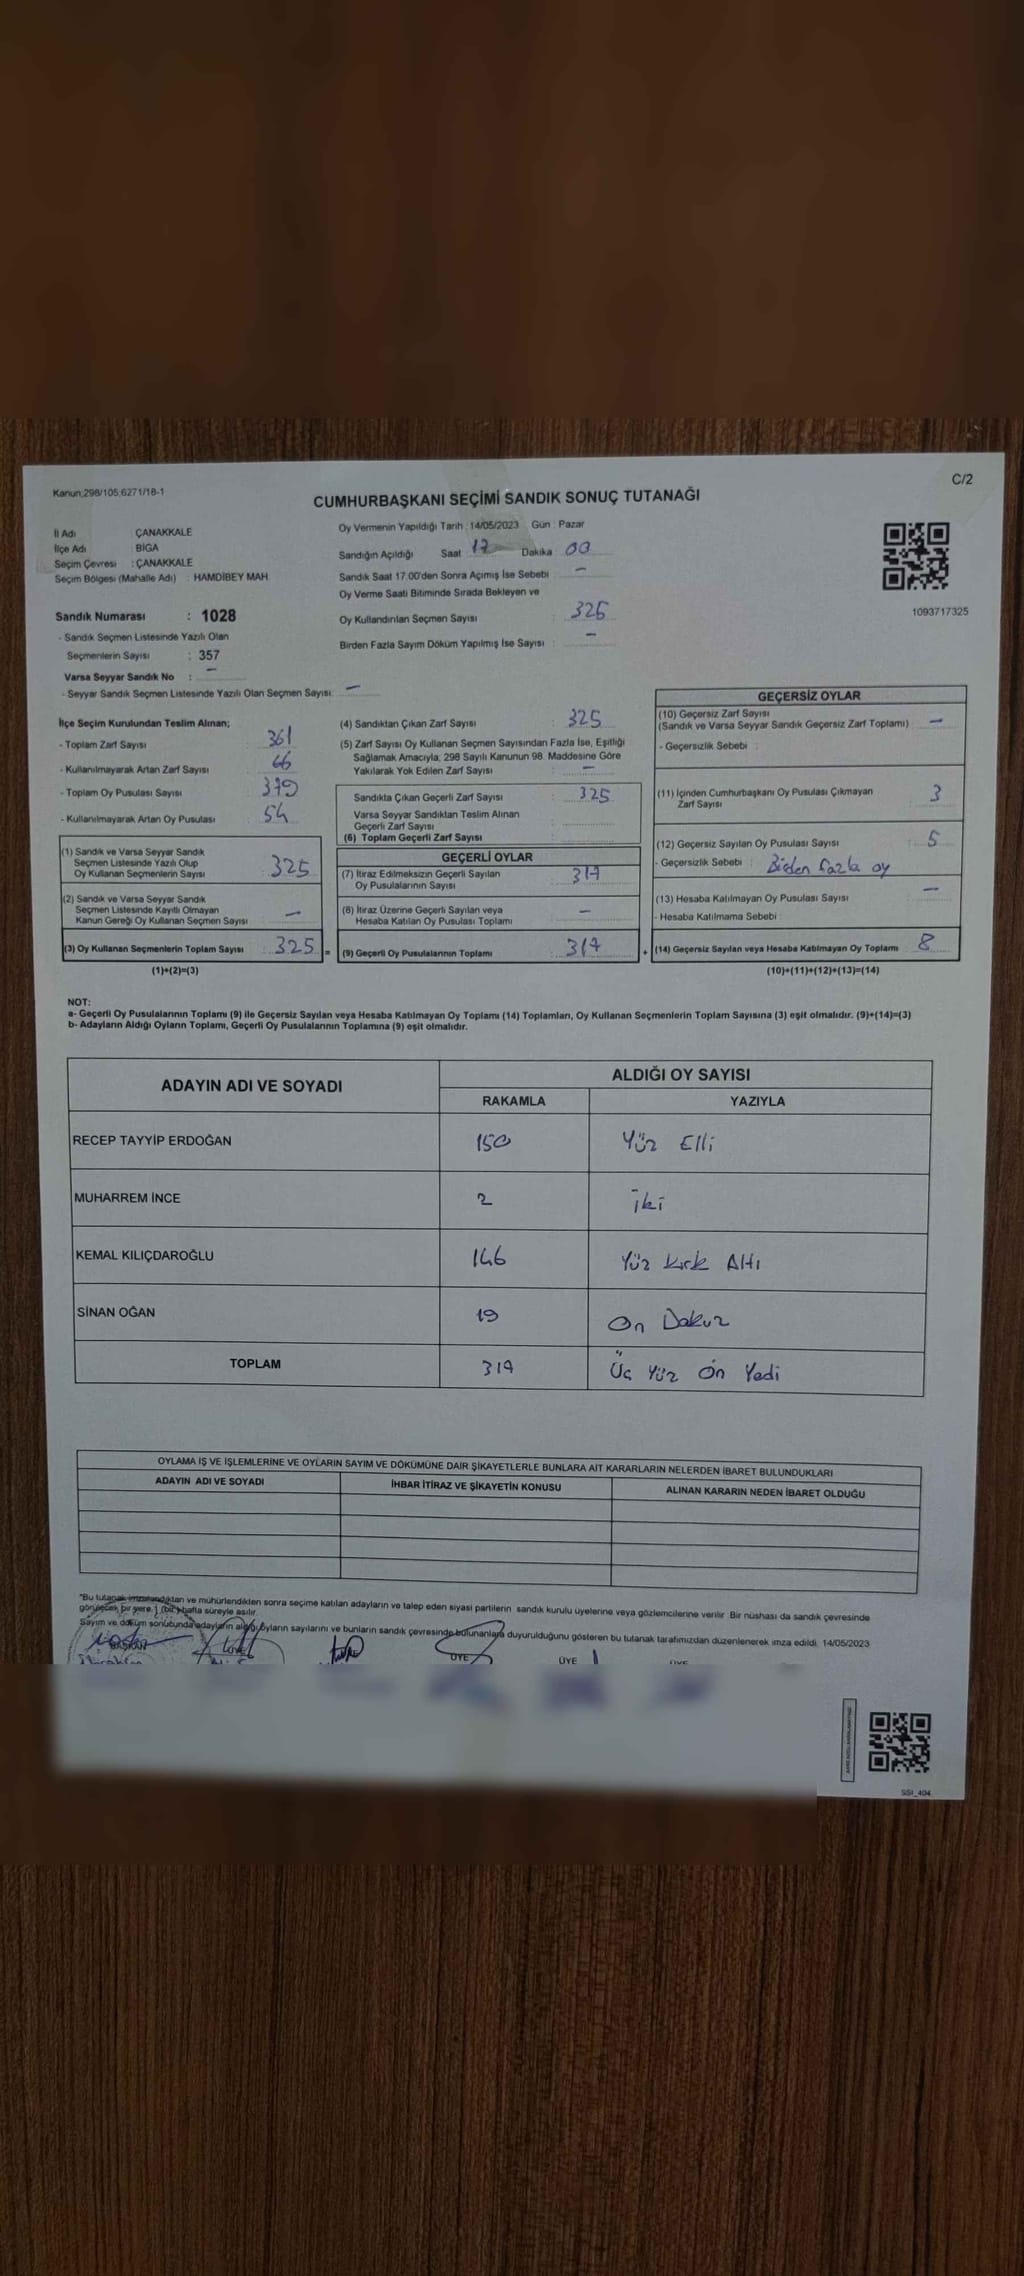 Kanun;298/105;6271/18-1
C/2
CUMHURBAŞKANI SEÇİMİ SANDIK SONUÇ TUTANAĞI
İl Adı ÇANAKKALE
İlçe Adı BİGA
Seçim Çevresi : ÇANAKKALE
Seçim Bölgesi (Mahalle Adı) : HAMDİBEY MAH
Sandık Numarası : 1028
- Sandık Seçmen Listesinde Yazılı Olan
Seçmenlerin Sayısı : 357
Varsa Seyyar Sandık No : –
- Seyyar Sandık Seçmen Listesinde Yazılı Olan Seçmen Sayısı: –
Oy Vermenin Yapıldığı Tarih : 14/05/2023 Gün : Pazar
Sandığın Açıldığı Saat 17 Dakika : 00
Sandık Saat 17.00'den Sonra Açımış İse Sebebi : –
Oy Verme Saati Bitiminde Sırada Bekleyen ve
Oy Kullandırılan Seçmen Sayısı : 325
Birden Fazla Sayım Döküm Yapılmış İse Sayısı : –
1093717325
İlçe Seçim Kurulundan Teslim Alınan;
- Toplam Zarf Sayısı 361
- Kullanılmayarak Artan Zarf Sayısı 66
- Toplam Oy Pusulası Sayısı 379
- Kullanılmayarak Artan Oy Pusulası 54
(1) Sandık ve Varsa Seyyar Sandık
Seçmen Listesinde Yazılı Olup
Oy Kullanan Seçmenlerin Sayısı 325
(2) Sandık ve Varsa Seyyar Sandık
Seçmen Listesinde Kayıtlı Olmayan
Kanun Gereği Oy Kullanan Seçmen Sayısı –
(3) Oy Kullanan Seçmenlerin Toplam Sayısı : 325 =
(1)+(2)=(3)
(4) Sandıktan Çıkan Zarf Sayısı : 325
(5) Zarf Sayısı Oy Kullanan Seçmen Sayısından Fazla İse, Eşitliği
Sağlamak Amacıyla, 298 Sayılı Kanunun 98. Maddesine Göre
Yakılarak Yok Edilen Zarf Sayısı : –
Sandıkta Çıkan Geçerli Zarf Sayısı : 325
Varsa Seyyar Sandıktan Teslim Alınan
Geçerli Zarf Sayısı
(6) Toplam Geçerli Zarf Sayısı :
GEÇERLİ OYLAR
(7) İtiraz Edilmeksizin Geçerli Sayılan
Oy Pusulalarının Sayısı 317
(8) İtiraz Üzerine Geçerli Sayılan veya
Hesaba Katılan Oy Pusulası Toplamı –
(9) Geçerli Oy Pusulalarının Toplamı : 317 +
GEÇERSİZ OYLAR
(10) Geçersiz Zarf Sayısı
(Sandık ve Varsa Seyyar Sandık Geçersiz Zarf Toplamı) : –
- Geçersizlik Sebebi :
(11) İçinden Cumhurbaşkanı Oy Pusulası Çıkmayan
Zarf Sayısı 3
(12) Geçersiz Sayılan Oy Pusulası Sayısı : 5
- Geçersizlik Sebebi : Birden fazla oy
(13) Hesaba Katılmayan Oy Pusulası Sayısı : –
- Hesaba Katılmama Sebebi :
(14) Geçersiz Sayılan veya Hesaba Katılmayan Oy Toplamı : 8
(10)+(11)+(12)+(13)=(14)
NOT:
a- Geçerli Oy Pusulalarının Toplamı (9) ile Geçersiz Sayılan veya Hesaba Katılmayan Oy Toplamı (14) Toplamları, Oy Kullanan Seçmenlerin Toplam Sayısına (3) eşit olmalıdır. (9)+(14)=(3)
b- Adayların Aldığı Oyların Toplamı, Geçerli Oy Pusulalarının Toplamına (9) eşit olmalıdır.
ADAYIN ADI VE SOYADI ALDIĞI OY SAYISI
RAKAMLA YAZIYLA
RECEP TAYYİP ERDOĞAN 150 Yüz Elli
MUHARREM İNCE 2 İki
KEMAL KILIÇDAROĞLU 146 Yüz Kırk Altı
SİNAN OĞAN 19 On Dokuz
TOPLAM 317 Üç Yüz On Yedi
OYLAMA İŞ VE İŞLEMLERİNE VE OYLARIN SAYIM VE DÖKÜMÜNE DAİR ŞİKAYETLERLE BUNLARA AİT KARARLARIN NELERDEN İBARET BULUNDUKLARI
ADAYIN ADI VE SOYADI İHBAR İTİRAZ VE ŞİKAYETİN KONUSU ALINAN KARARIN NEDEN İBARET OLDUĞU
*Bu tutanak imzalandıktan ve mühürlendikten sonra seçime katılan adayların ve talep eden siyasi partilerin sandık kurulu üyelerine veya gözlemcilerine verilir. Bir nüshası da sandık çevresinde
görülecek bir yere 1 (bir) hafta süreyle asılır.
Sayım ve döküm sonucunda adayların aldığı oyların sayılarını ve bunların sandık çevresinde bulunanlara duyurulduğunu gösteren bu tutanak tarafımızdan düzenlenerek imza edildi. 14/05/2023
BAŞKAN ÜYE ÜYE ÜYE ÜYE
SSI_404